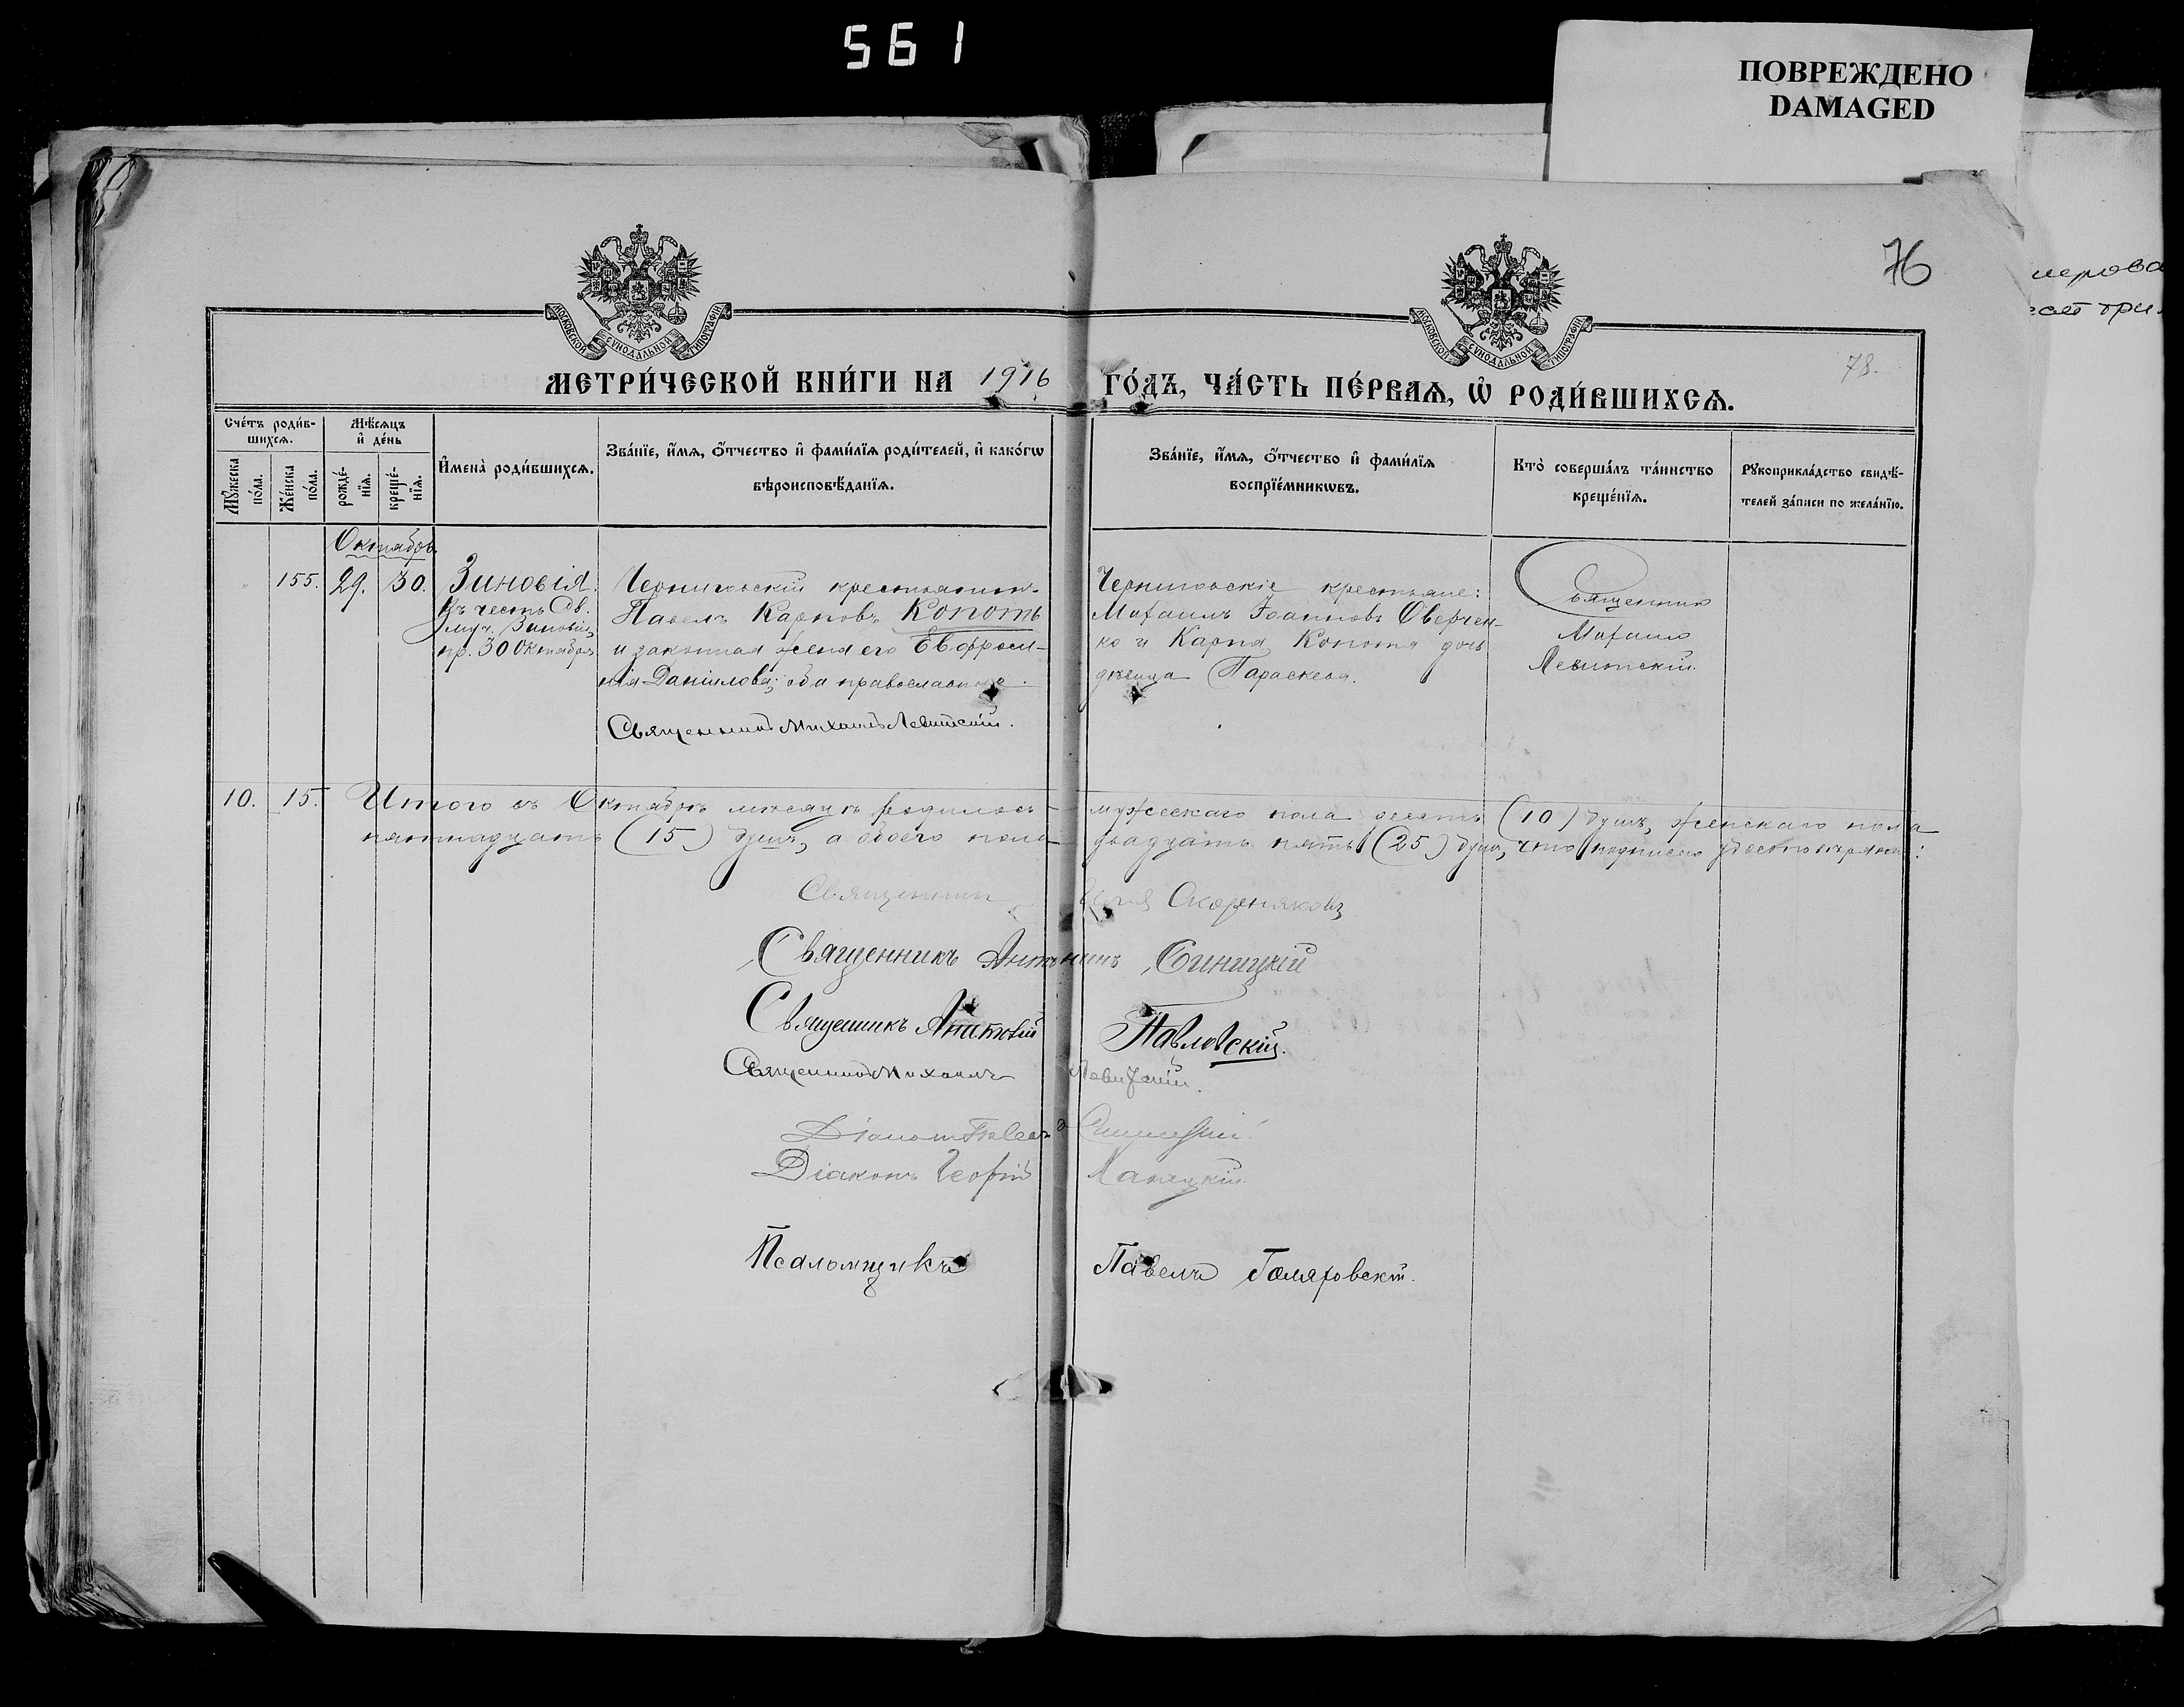 561
ПОВРЕЖДЕНО
DAMAGED
76
78.
МОСКОВСКОЙ СѴНОДАЛЬНОЙ ТИПОГРАФІИ
МОСКОВСКОЙ СѴНОДАЛЬНОЙ ТИПОГРАФІИ
МЕТРИ́ЧЕСКОЙ КНИ́ГИ НА 1916 ГО́ДЪ, ЧА́СТЬ ПЕ́РВАѦ, Ѡ҆ РОДИ́ВШИХСѦ.
Сче́тъ роди́в-
шихсѧ.
Мѣ́сѧцъ
и҆ де́нь
Мꙋ́жеска
по́ла.
Же́нска
по́ла.
рожде́-
нїѧ.
креще́-
нїѧ.
И҆мена̀ роди́вшихсѧ.
Зва́нїе, и҆́мѧ, ѻ҆́тчество и҆ фами́лїѧ роди́телей, и҆ како́гѡ
вѣроисповѣ́данїѧ.
Зва́нїе, и҆́мѧ, ѻ҆́тчество и҆ фами́лїѧ
воспрїе́мникѡвъ.
Кто̀ соверша́лъ та́инство
креще́нїѧ.
Рꙋкоприкла́дство свидѣ́-
телей за́писи по жела́нїю.
Октябрь
155. 29. 30. Зиновія.
Въ честь Св.
муч. Зиновіи,
пр. 30 Октября
Черниговскій крестьянинъ
Павелъ Карповъ Копоть
и законная жена его Евфроси-
нія Даніилова; оба православные.
Священникъ Михаилъ Левитскій.
Черниговскіе крестьяне:
Михаилъ Іоанновъ Оверчен-
ко и Карпа Копотя дочь
дѣвица Параскева.
Священникъ
Михаилъ
Левитскій.
10. 15. Итого въ Октябрѣ мѣсяцѣ родилось мужескаго пола десять (10) душъ, женскаго пола
пятнадцать (15) душъ, а обоего пола двадцать пять (25) душъ, что подписью удостовѣряемъ:
Священникъ Скорняковъ
Священникъ Антонинъ Синицкій
Священникъ Павловскій.
Священникъ Михаилъ Левитскій.
Діаконъ
Діаконъ Георгій Манецкій
Псаломщикъ Павелъ Гомяровскій.